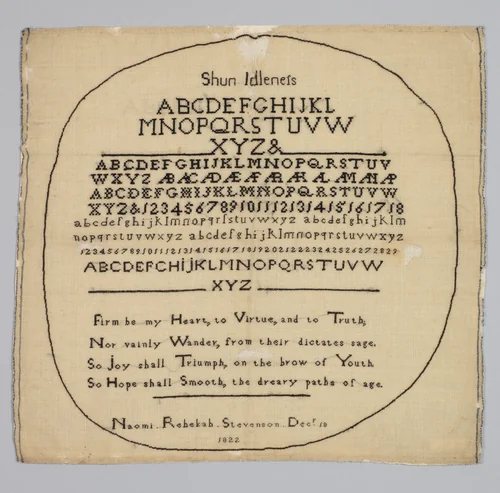 Shun Idleneſs
ABCDEFGHIJKL
MNOPQRSTUVW
XYZ&
ABCDEFGHIJKLMNOPQRSTUV
WXYZ
ABCDEFGHIJKLMNOPQRSTUVW
XYZ&123456789101112131415161718
abcdefghijklmnopqrſstuvwxyz abcdefghijklm
nopqrstuvwxyz abcdefghijklmnopqrstuvwxyz
1234567891011121314151617181920212223242526272829
ABCDEFGHIJKLMNOPQRSTUVW
XYZ
Firm be my Heart, to Virtue, and to Truth;
Nor vainly Wander, from their dictates sage.
So Joy shall Triumph, on the brow of Youth
So Hope shall Smooth, the dreary paths of age.
Naomi Rebekah Stevenson Decr 19
1822